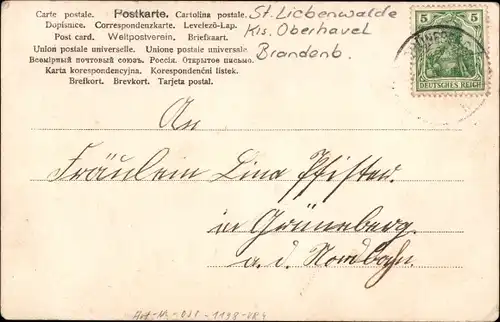 Carte postale. Postkarte. Cartolina postale.
Dopisnice. Correspondenzkarte. Levelező-Lap.
Post card. Weltpostverein. Briefkaart.
Union postale universelle. Unione postale universale
Всемірный почтовый союзъ. Россія. Открытое письмо.
Karta korespondencyjna. Korespondenční listek.
Brefkort. Brevkort. Tarjeta postal.
St. Liebenwalde
Krs. Oberhavel
Brandenb.
5 5
DEUTSCHES REICH
An
Fräulein Lina Pfister.
in Grüneberg.
a. d. Nordbahn.